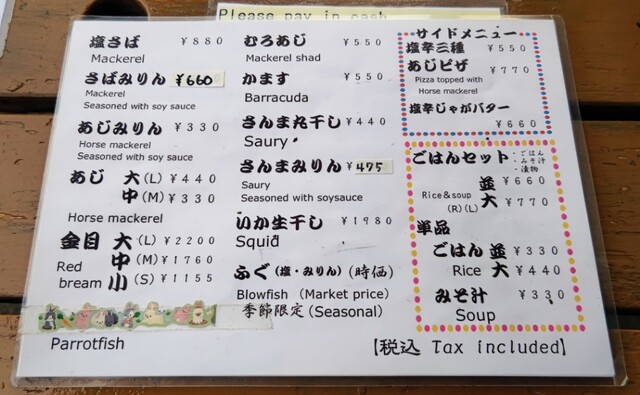 Please pay in cash
塩さば ￥880
Mackerel
さばみりん ￥660
Mackerel
Seasoned with soy sauce
あじみりん ￥330
Horse mackerel
Seasoned with soy sauce
あじ 大(L) ￥440
中(M) ￥330
Horse mackerel
金目 大(L) ￥2200
Red bream 中(M) ￥1760
小(S) ￥1155
Parrotfish
むろあじ ￥550
Mackerel shad
かます ￥550
Barracuda
さんま丸干し ￥440
Saury
さんまみりん ￥475
Saury
Seasoned with soysauce
いか生干し ￥1980
Squid
ふぐ(塩・みりん)(時価)
Blowfish (Market price)
季節限定(Seasonal)
サイドメニュー
塩辛三種 ￥550
あじピザ ￥770
Pizza topped with
Horse mackerel
塩辛じゃがバター
￥660
ごはんセット:ごはん
・みそ汁
・漬物
Rice&soup 並 ￥660
(R)(L) 大 ￥770
単品
ごはん 並 ￥330
Rice 大 ￥440
みそ汁 ￥330
Soup
【税込 Tax included】